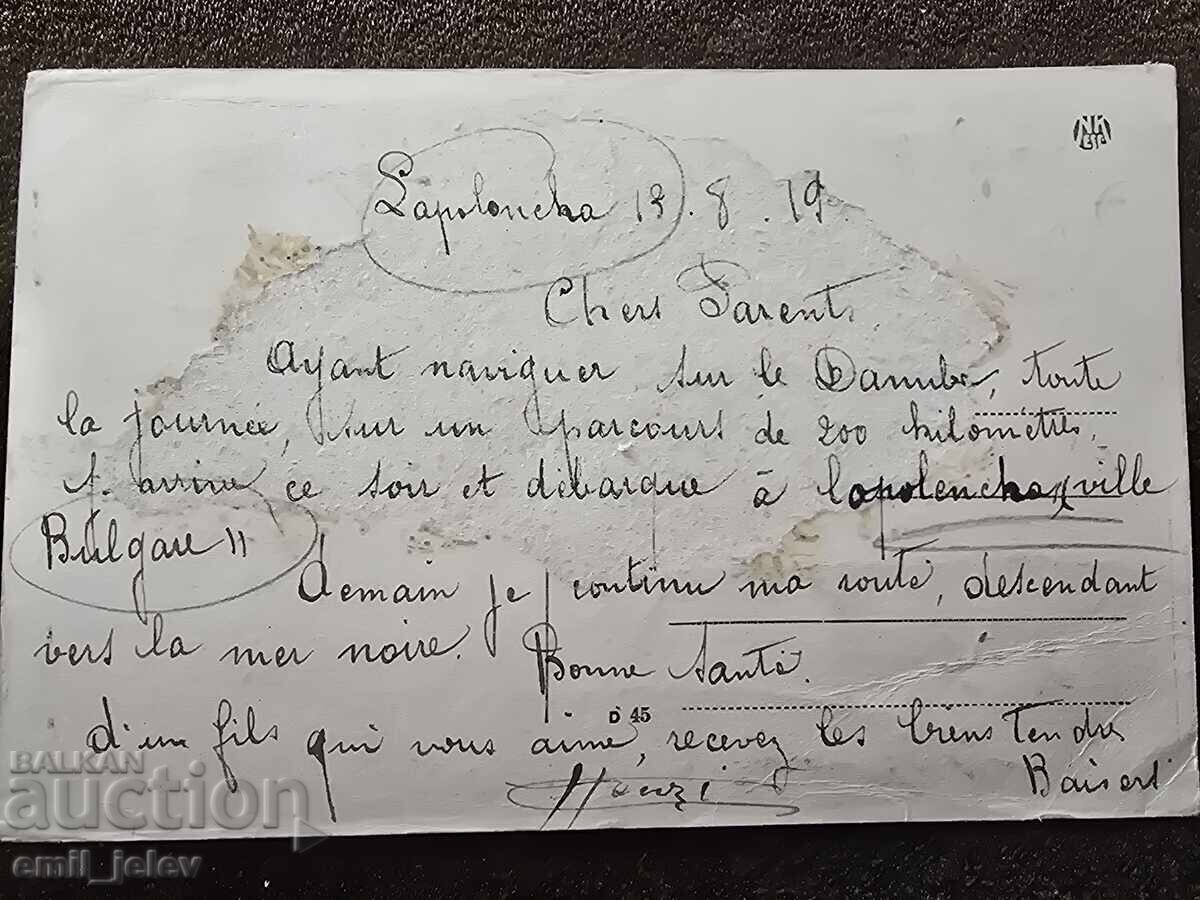 Lapoloncka 13.8.19
Chers Parents,
Ayant naviguer sur le Danube, toute
la journée, sur un parcours de 200 kilomètres,
j'arrive ce soir et débarque à lapolencka, ville
Bulgare "
demain je continu ma route, descendant
vers la mer noire. Bonne Santé.
D 45
d'un fils qui vous aime, recevez les biens tendre
Baisers
Henri
BALKAN
auction
emil_jelev